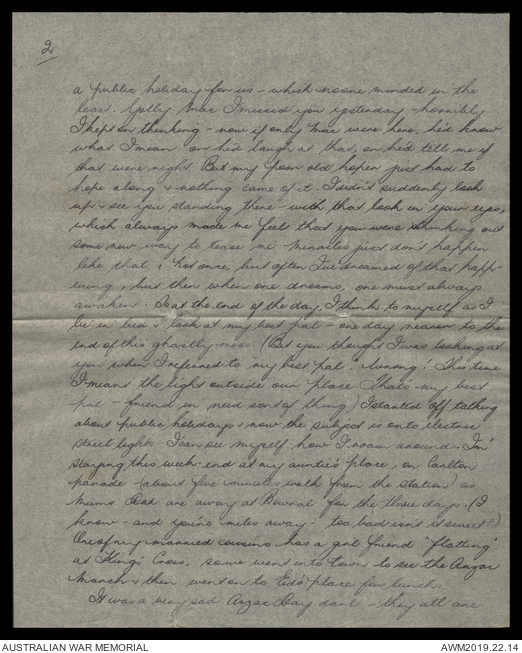 2
a public holiday for us - which no one minded in the
least. Golly Mac I missed you yesterday - horribly
I kept on thinking - now if only Mac were here, he'd know
what I mean or he'd laugh at that, or he'd tell me if
that were right But my poor old hopes just had to
hope along & nothing came of it. I didn't suddenly look
up & see you standing there - with that look in your eyes,
which always made me feel that you were thinking out
some new way to tease me - miracles just don't happen
like that, not once, but often I've dreamed of that happ-
ening, but then when one dreams, one must always
awaken. So at the end of the day, I think to myself as I
lie in bed & look at my best pal - one day nearer to the
end of this ghastly mess. (Bet you thought I was looking at
you when I referred to "my best pal". Wrong! This time
I meant the light outside our place Thats my best
pal - friend in need sort of thing) I started off talking
about public holidays & now the subject is onto electric
street lights I can see myself how I roam around. I'm
staying this week-end at my auntie's place, on Carlton
parade - (about five minutes walk from the station) as
Mum & Dad are away at Bowral for the three days. (I
know - and you're miles away - too bad isn't it sweet?)
One of my married cousins has a girl friend "flatting"
at Kings Cross, so we went into town to see the Anzac
March & then went on to Ed's place for lunch.
It was a very sad Anzac Day darl - they all are
AUSTRALIAN WAR MEMORIAL
AWM2019.22.14